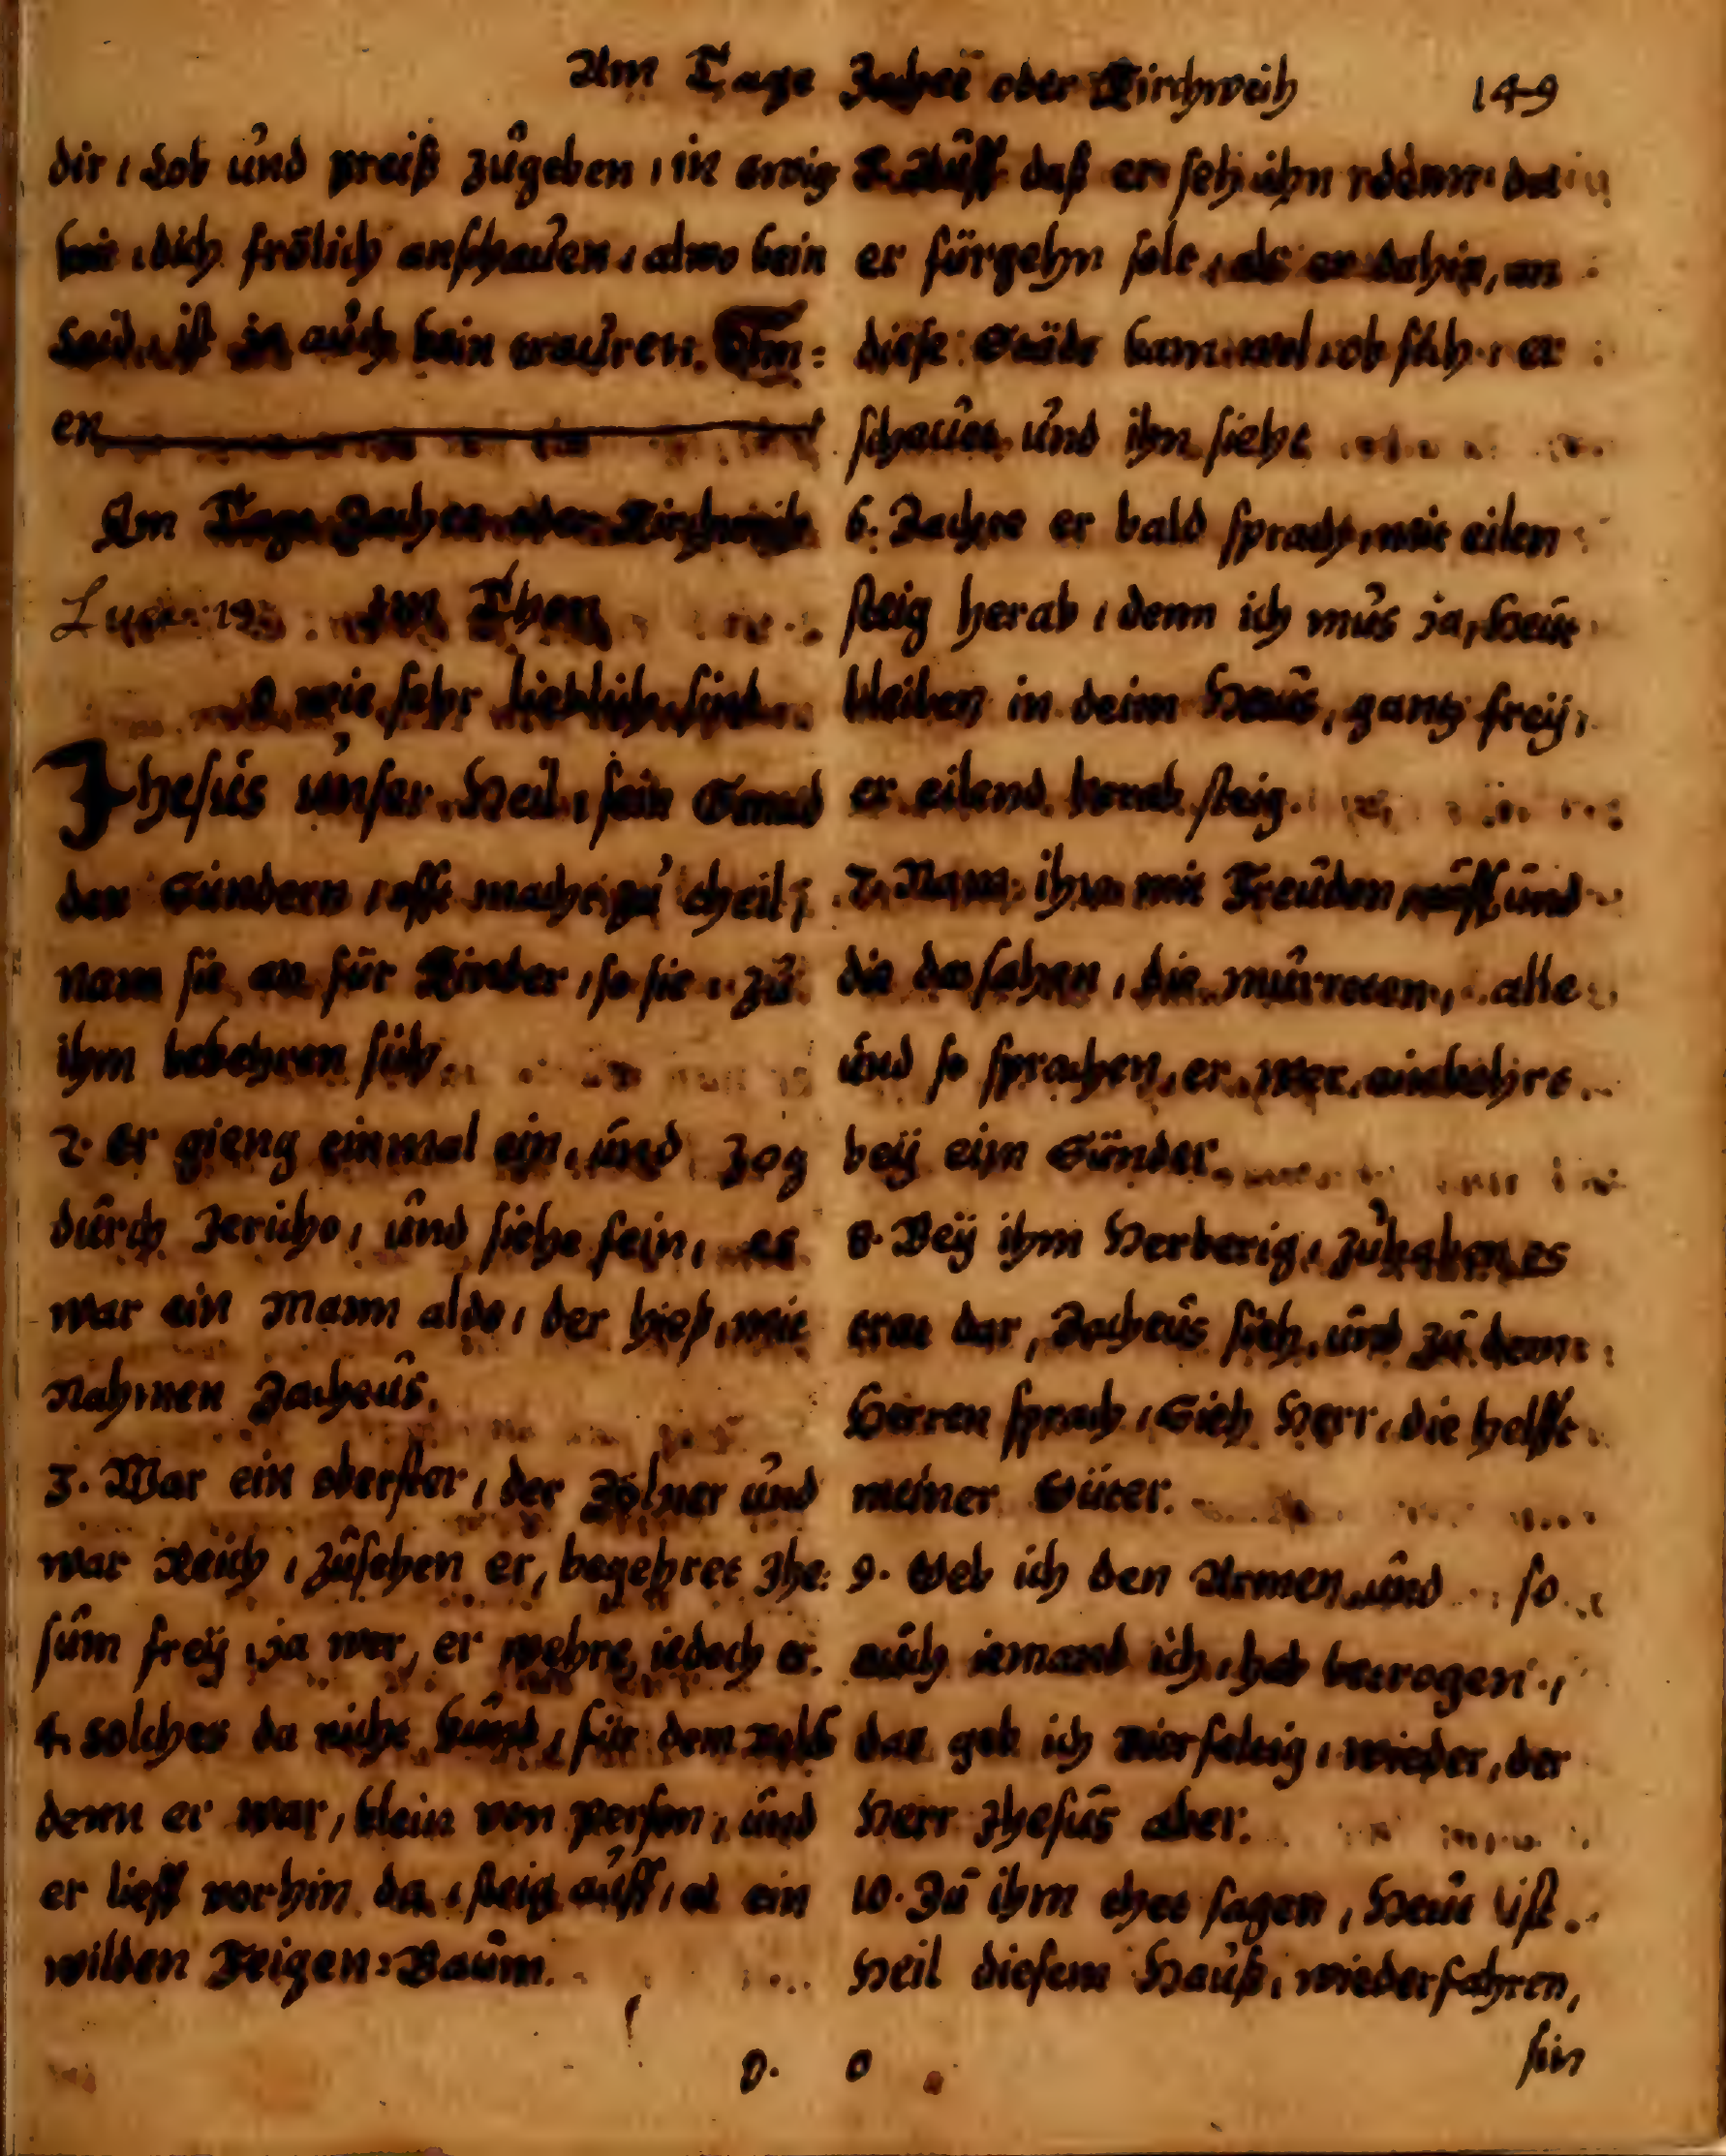 Am Tage Zachei oder Kirchweih 149
dir, Lob und preiß zugeben, in ewig
keit, dich frölich anschauen, alwo kein
Leid, ist ja auch kein trauren. Am=
en
Am Tage Zachei oder Kirchweih
Luca: 19. im Thon
O wie sehr lieblich sind
Jhesus unser Heil, sein Gnad
den Sündern, offt macht zu theil,
nam sie an für Kinder, so sie, zu
ihm bekehren sich.
2. Er gieng einmal ein, und zog
durch Jericho, und siehe fein, es
war ein Mann aldo, der hieß, mit
Nahmen Zacheus.
3. War ein oberster, der Zölner und
war Reich, zusehen er, begehret Jhe=
sum frey, ja wer, er wehre, iedoch er.
4. Solches da nicht kund, für dem Volck
denn er war, klein von Person, und
er lieff vorhin da, steig auff, ein
wilden Feigen=Baum.
daß er seh ihn
er fürgehn solt, als er dahin, an
diese Städt kam, ob sich, er
schauet, und ihn sieht
6. Zachee er bald sprach, mit eilen
steig herab, denn ich mus ja, heut
bleiben in deim Haus, gantz frey,
er eilend herab steig.
7. Nam ihn mit Freuden auff, und
die das sahen, die murreten, alle
und so sprachen, er wer einkehrt
bey eim Sünder.
8. Bey ihm Herberig, zuhaben, es
trat dar, Zacheus sich, und zu dem
Herren sprach, Sieh Herr, die helfft
meiner Güter.
9. Geb ich den Armen, und so
auch iemand ich, hab betrogen,
das geb ich vierfeltig, wieder, der
Herr Jhesus aber.
10. Zu ihm thet sagen, Heut ist
Heil diesem Hauß, wiederfahren,
sin
O. o